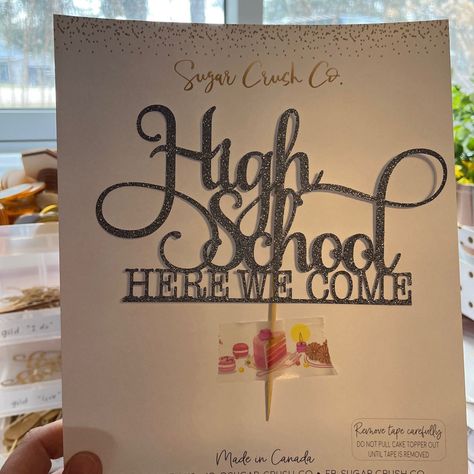 Sugar Crush Co.
High
School
HERE WE COME
Remove tape carefully
DO NOT PULL CAKE TOPPER OUT
UNTIL TAPE IS REMOVED
Made in Canada
FB: SUGAR CRUSH CO
gold "I do"
gold